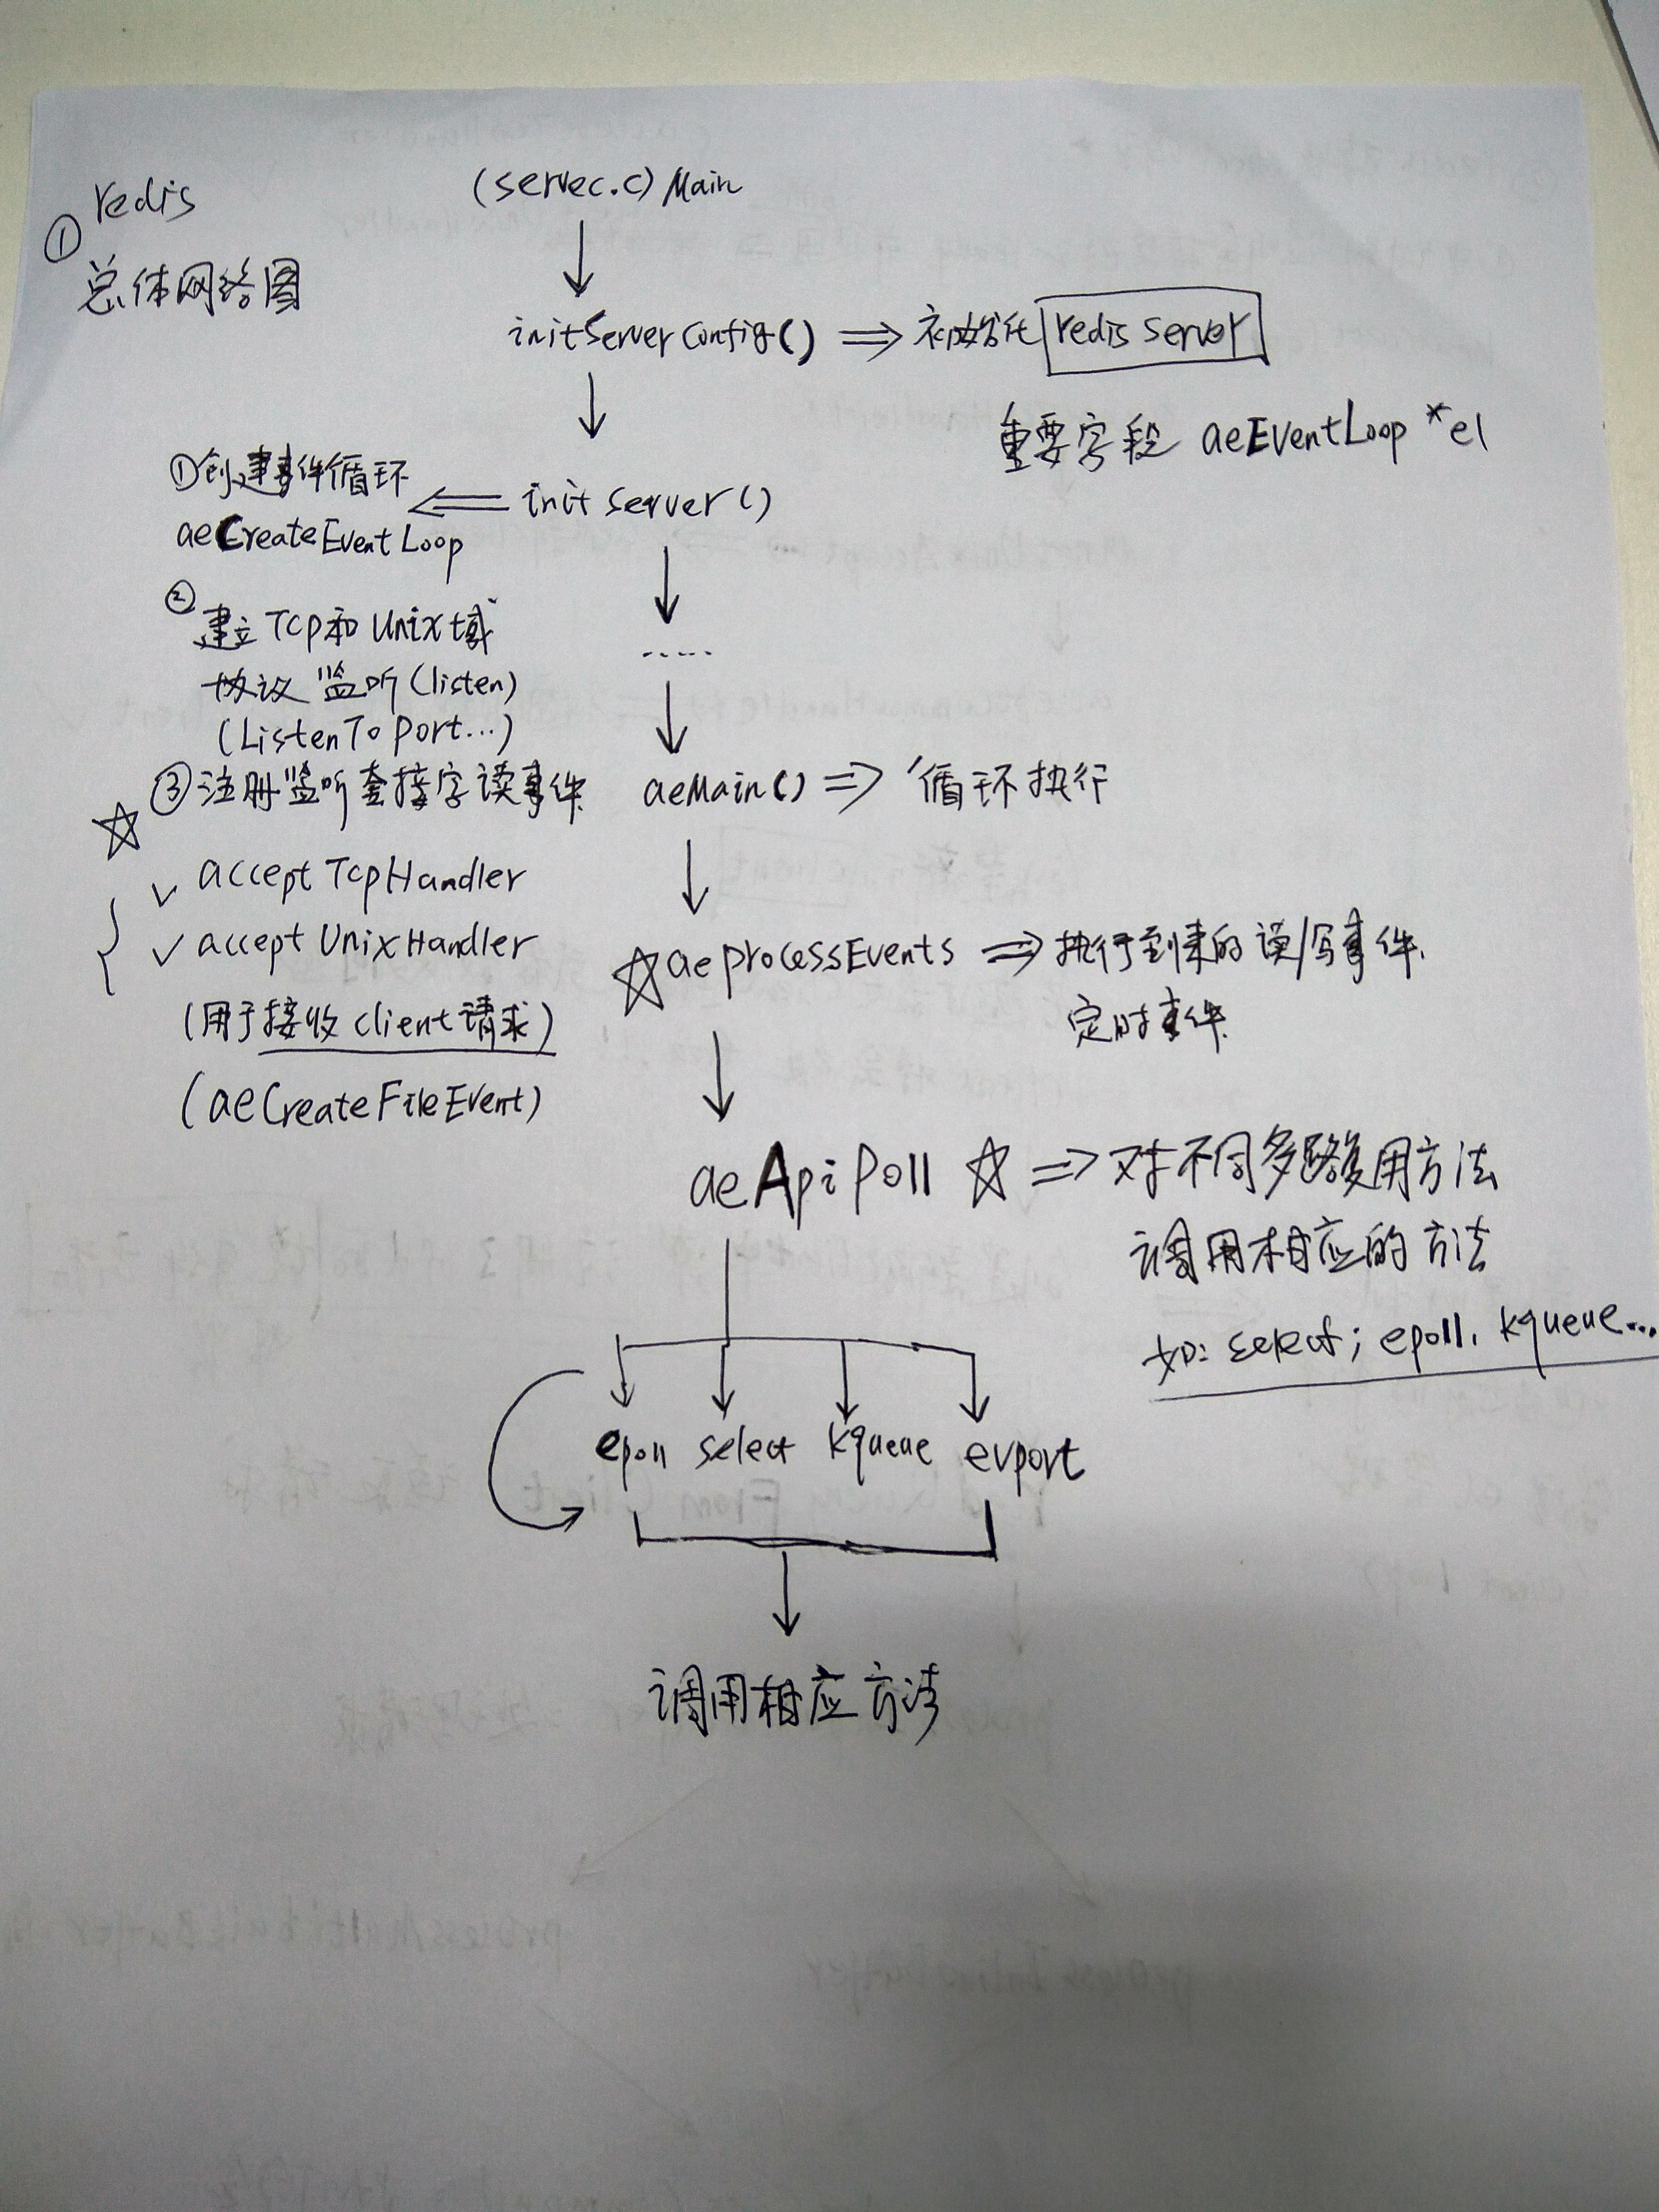 ① redis
总体网络图
(servec.c) Main
initServerConfig() ⇒ 初始化 redis server
重要字段 aeEventLoop *el
initServer()
①创建事件循环
aeCreateEventLoop
②
建立Tcp和Unix域
协议监听(listen)
(ListenToPort...)
③注册监听套接字读事件
☆
✓ acceptTcpHandler
✓ acceptUnixHandler
(用于接收client请求)
(aeCreateFileEvent)
.....
aeMain() ⇒ 循环执行
☆ aeprocessEvents ⇒ 执行到来的读/写事件.
定时事件.
aeApiPoll ☆ ⇒ 对不同多路复用方法
调用相应的方法
如: select; epoll, kqueue...
epoll select kqueue evport
调用相应方法